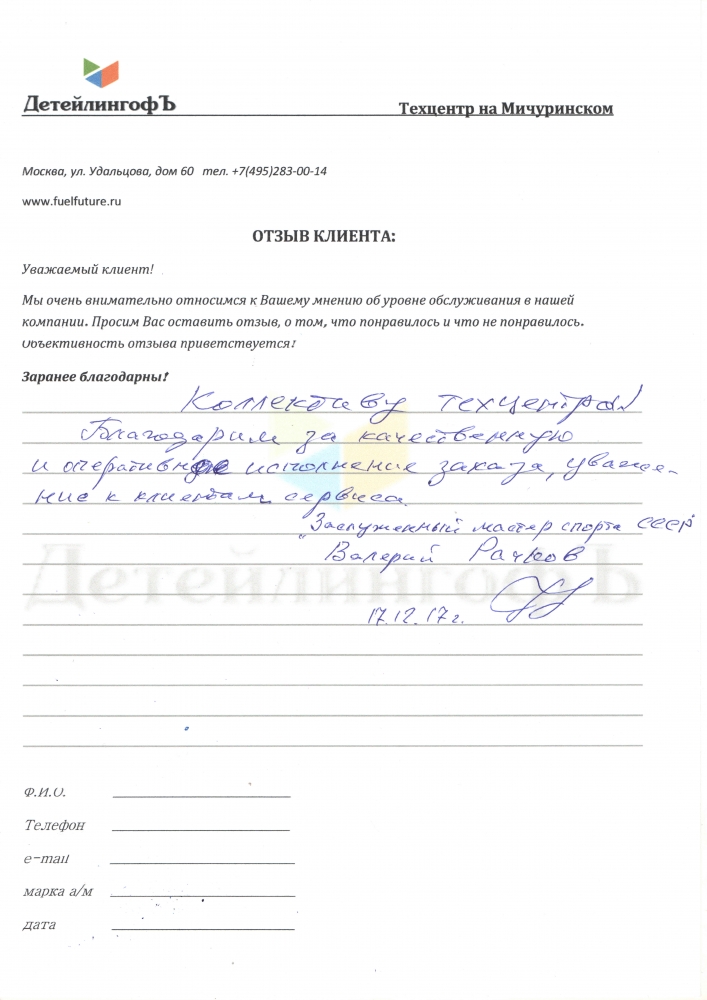 ДетейлингофЪ
Техцентр на Мичуринском
Москва, ул. Удальцова, дом 60 тел. +7(495)283-00-14
www.fuelfuture.ru
ОТЗЫВ КЛИЕНТА:
Уважаемый клиент!
Мы очень внимательно относимся к Вашему мнению об уровне обслуживания в нашей
компании. Просим Вас оставить отзыв, о том, что понравилось и что не понравилось.
Объективность отзыва приветствуется!
Заранее благодарны!
Коллективу техцентра!
Благодарим за качественную
и оперативное исполнение заказа, уваже-
ние к клиентам сервиса.
"Заслуженный мастер спорта СССР"
Валерий
17.12.17г.
ДетейлингофЪ
Ф.И.О.
Телефон
e-mail
марка а/м
дата